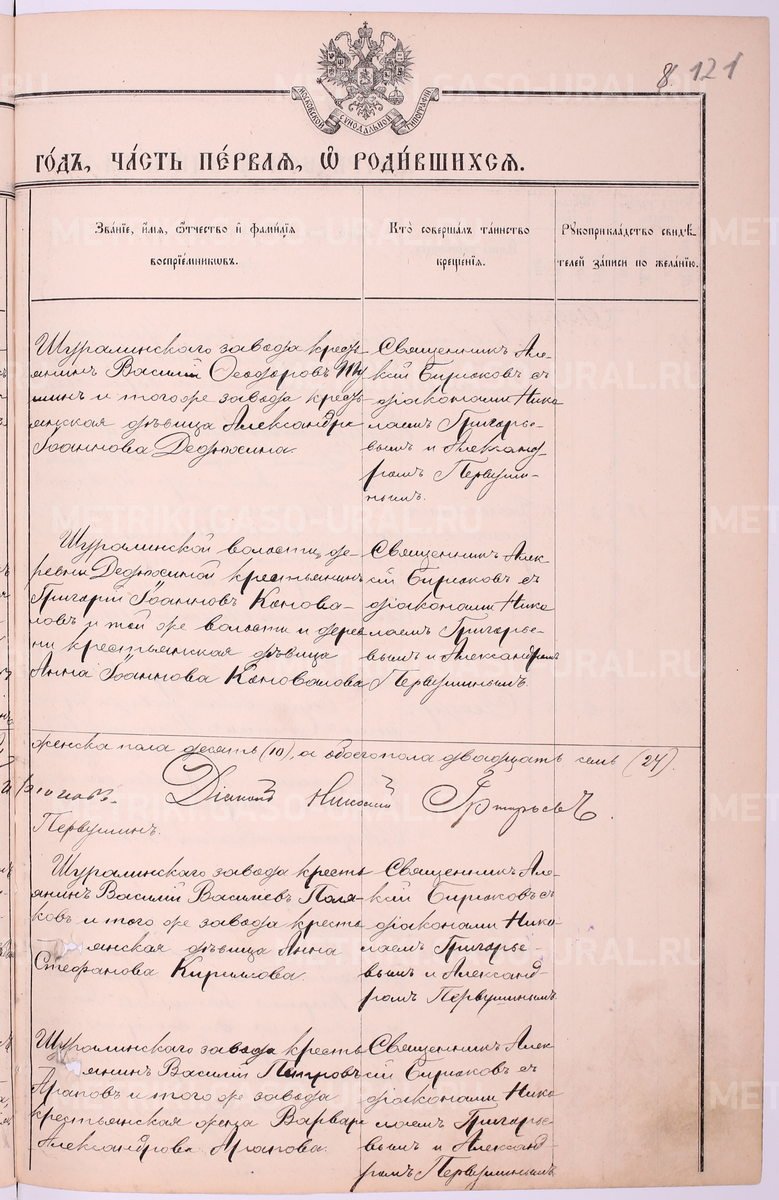 8. 121
МОСКОВСКОЙ СѴНОДАЛЬНОЙ ТИПОГРАФІИ
го́дъ, ча́сть пе́рвая, ѡ҆ роди́вшихся.
Зва́ніе, и҆́мя, ѻ҆́тчество и҆ фами́лія
воспріе́мниковъ.
Кто̀ соверша́лъ та́инство
креще́нія.
Рꙋкоприкла́дство свидѣ́-
телей за́писи по жела́нію.
Шуралинскаго завода кресть-
янинъ Василій Ѳеодоровъ
шинъ и того же завода кресть-
янская дѣвица Александра
Іоаннова Дедюхина.
Священникъ Але-
ксій Бирюковъ съ
діаконами Нико
лаемъ Григорье-
вымъ и Александ-
ромъ Первуши-
нымъ.
Шуралинской волости, де-
ревни Дедюхиной крестьянинъ
Григорій Іоанновъ Конова-
ловъ и той же волости и дерев
ни крестьянская дѣвица
Анна Іоаннова Коновалова
Священникъ Алек-
сій Бирюковъ съ
діаконами Нико
лаемъ Григорье-
вымъ и Александромъ
Первушинымъ.
женска пола десять (10), а обоего пола двадцать семь (27).
Діаконъ Николай Григорьевъ
Первушинъ.
Шуралинскаго завода кресть
янинъ Василій Васильевъ Поля-
ковъ и того же завода кресть
янская дѣвица Анна
Стефанова Кирилова.
Священникъ Але-
ксій Бирюковъ съ
діаконами Нико-
лаемъ Григорье-
вымъ и Александ-
ромъ Первушинымъ
Шуралинскаго завода кресть
янинъ Василій Петровъ
Арапов и того же завода
крестьянская жена Варвара
Александрова Арапова.
Священникъ Алек
сій Бирюковъ съ
діаконами Нико
лаемъ Григорье-
вымъ и Александ-
ромъ Первушинымъ
METRIKI.GASO-URAL.RU